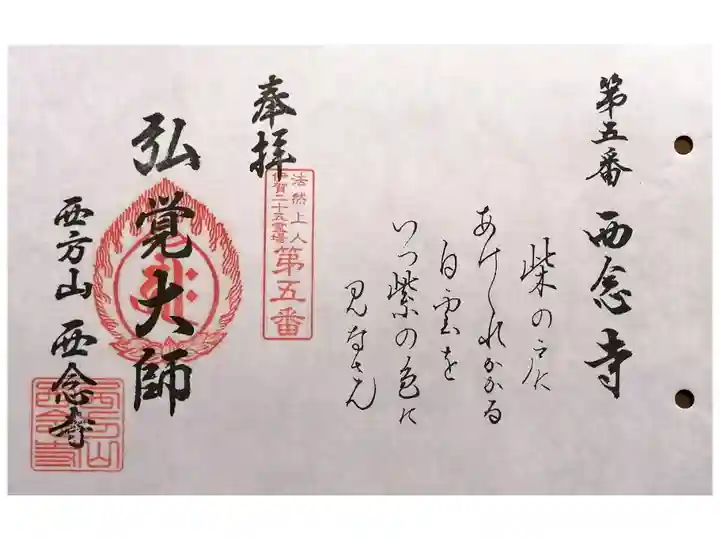 第五番 西念寺
柴の戸に
あけくれかかる
白雲を
いつ紫の色に
見なさん
奉拝
法然上人
伊賀二十五霊場
第五番
弘覚大師
西方山 西念寺